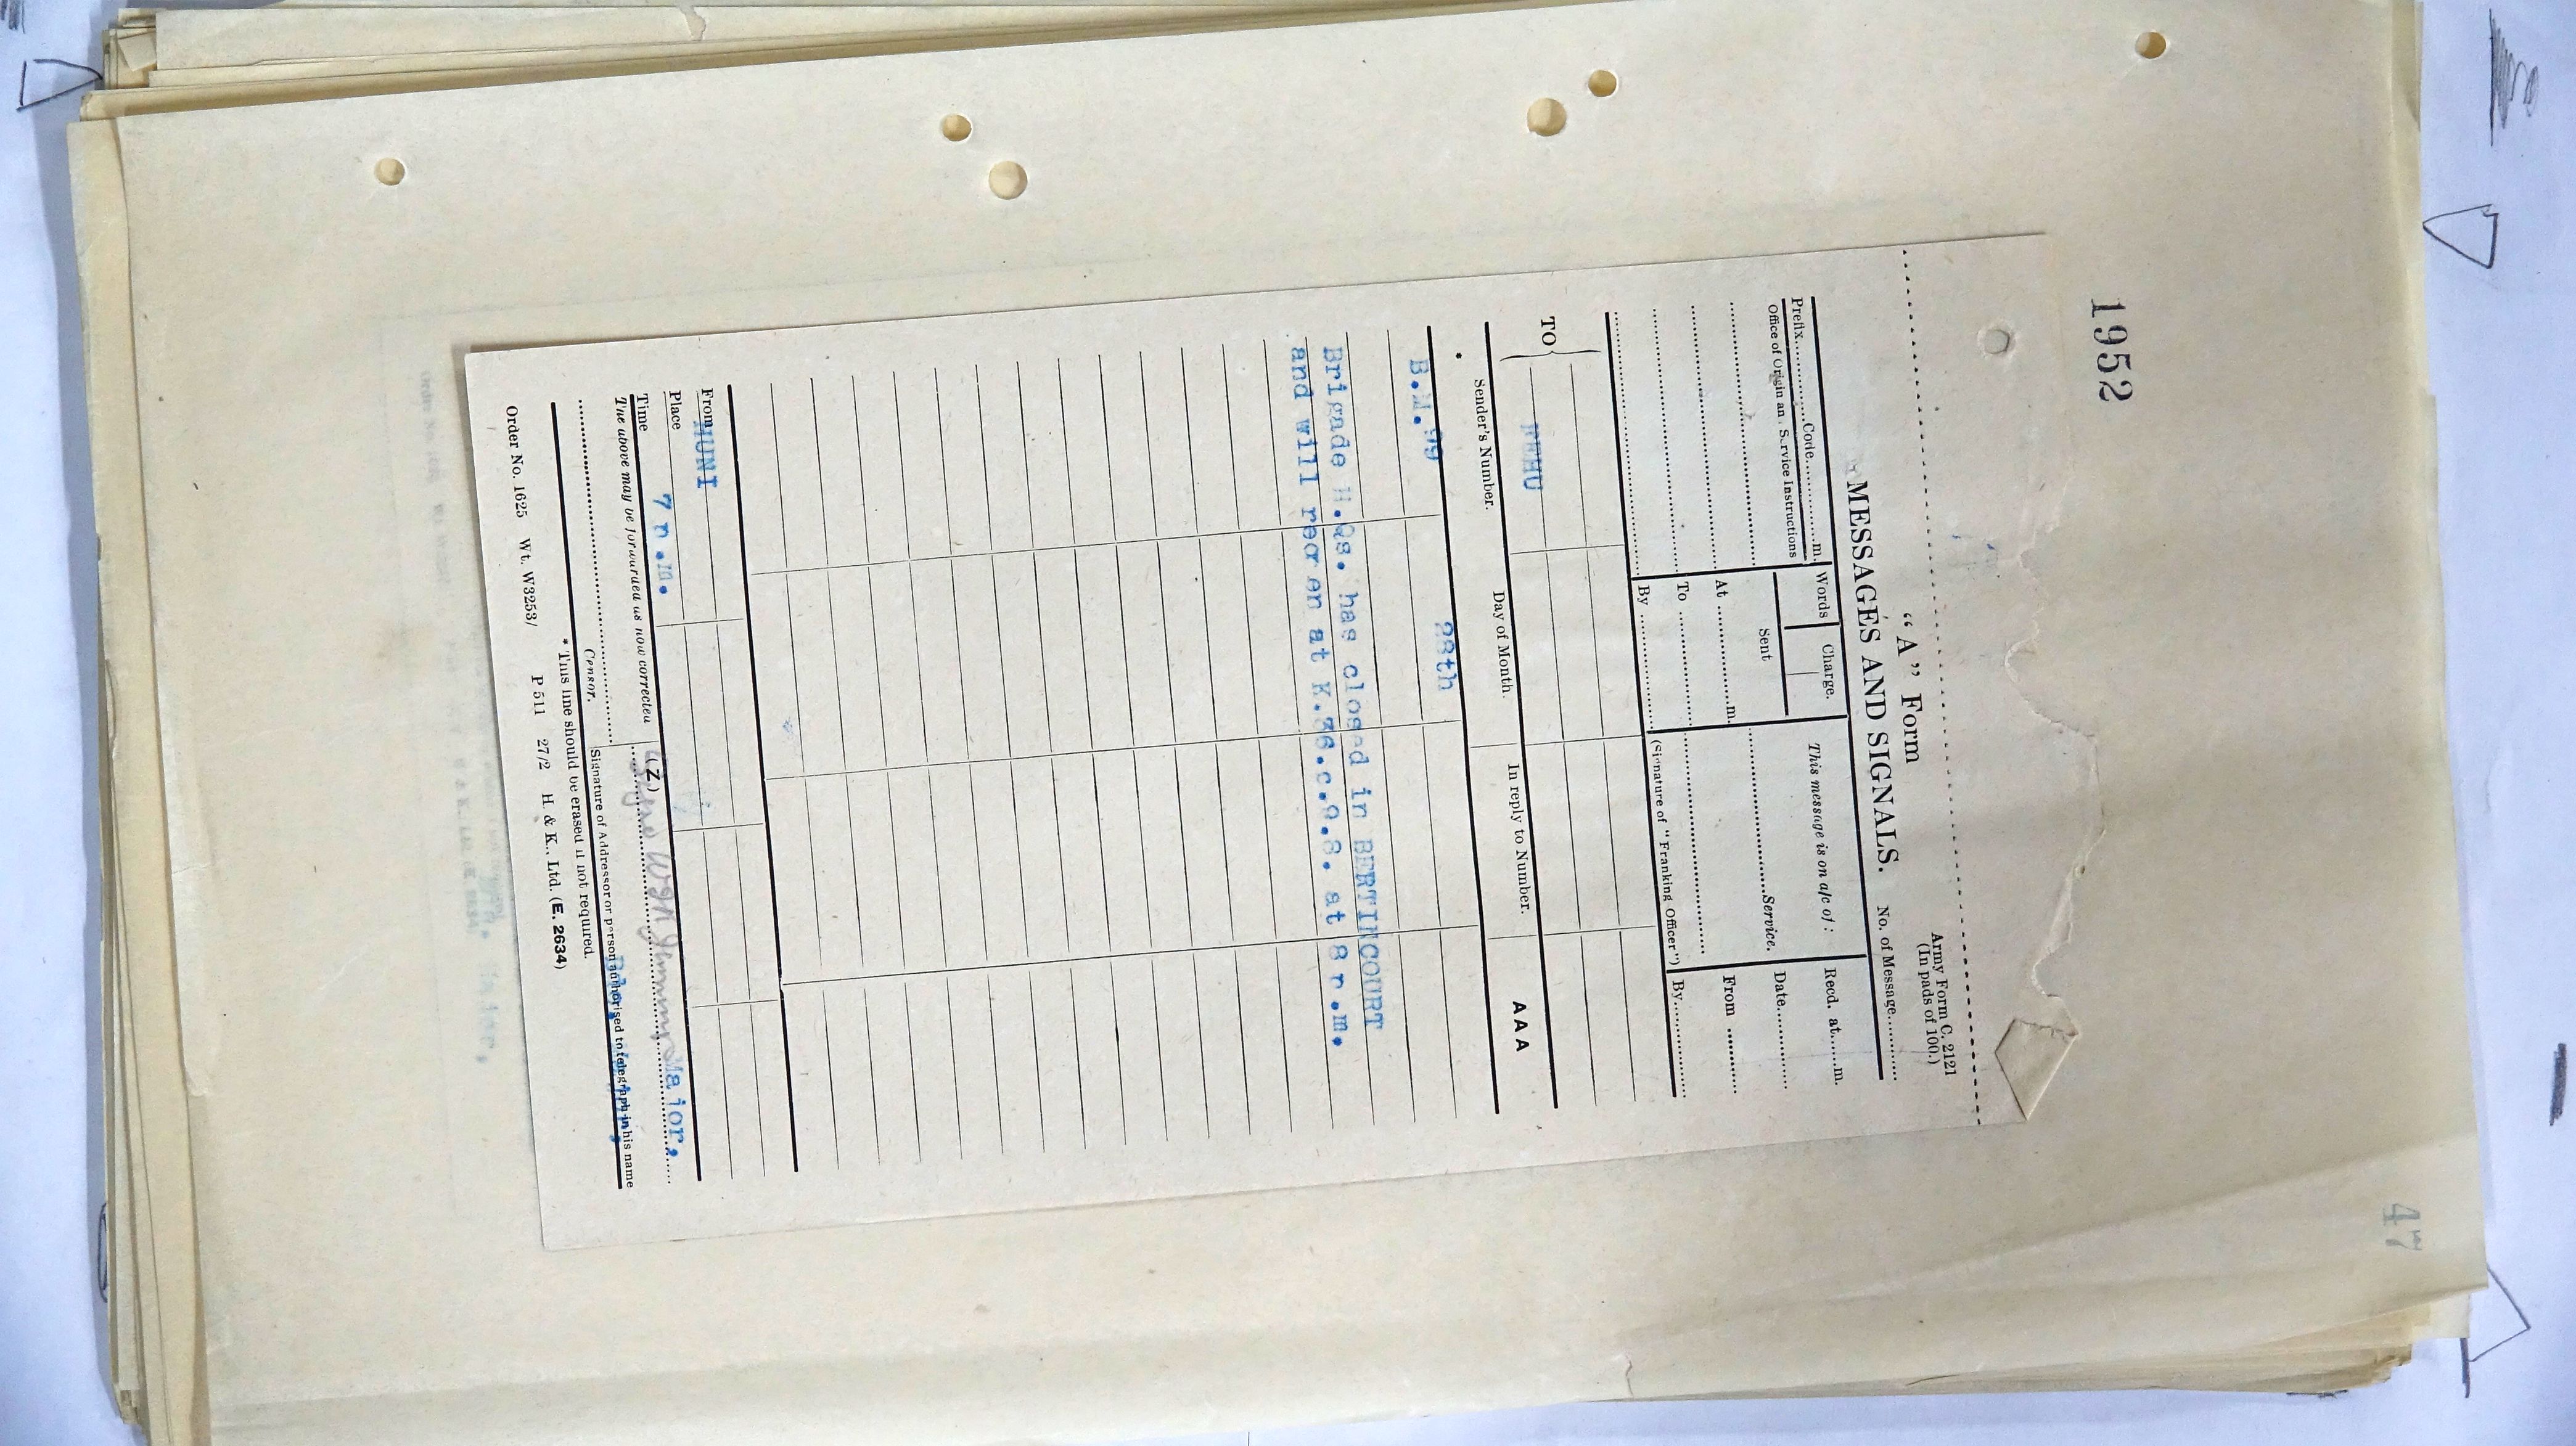 1952
47
"A" Form
Army Form C. 2121
(In pads of 100.)
MESSAGES AND SIGNALS.
No. of Message
Prefix Code m.
Words
Charge.
This message is on a/c of :
Recd. at m.
Office of Origin an. Service Instructions
Sent
Service.
Date
At m.
From
To
By
(Signature of "Franking Officer")
By
TO
Sender's Number.
Day of Month.
In reply to Number.
AAA
B.M.99
28th
Brigade H.Qs. has closed in BERTINCOURT
and will reopen at K.36.c.9.8. at 8 p.m.
From MUNI
Place
Time 7 p.m.
The above may be forwarded as now corrected
(Z)
Major,
Censor.
Signature of Addressor or person authorised to telegraph in his name
* This line should be erased if not required.
Order No. 1625 Wt. W3253/ P 511 27/2 H. & K., Ltd. (E. 2634)